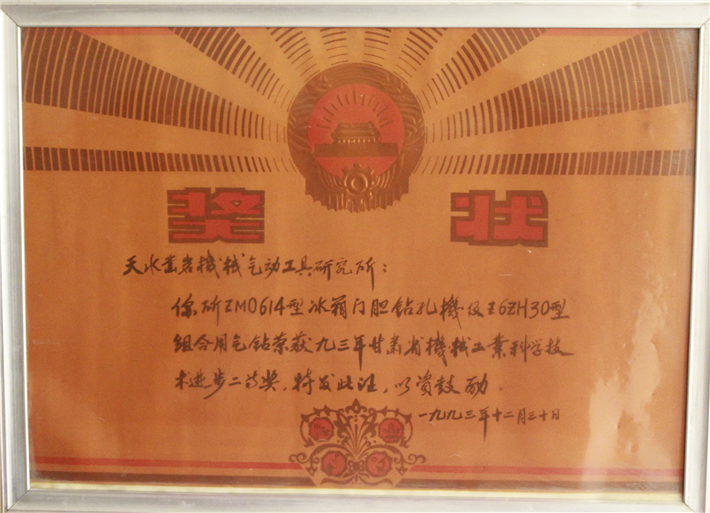 奖状
天水凿岩機械气动工具研究所：
你所ZM0614型冰箱门胆钻孔機及Z6ZH30型
组合用气钻荣获九三年甘肃省機械工業科学技
术进步二等奖，特发此证，以资鼓励。
一九九三年十二月三十日